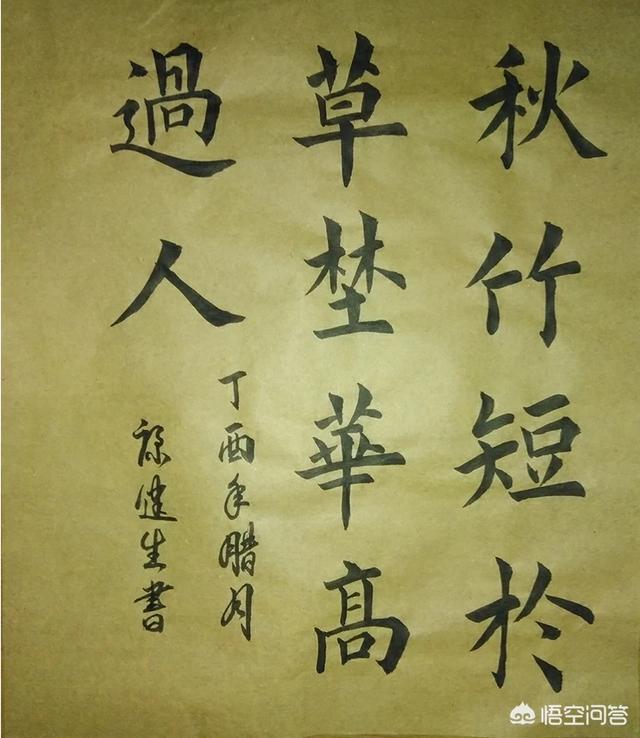 秋竹短於
草埜華髙
過人
丁酉年腊月
健生書
悟空问答